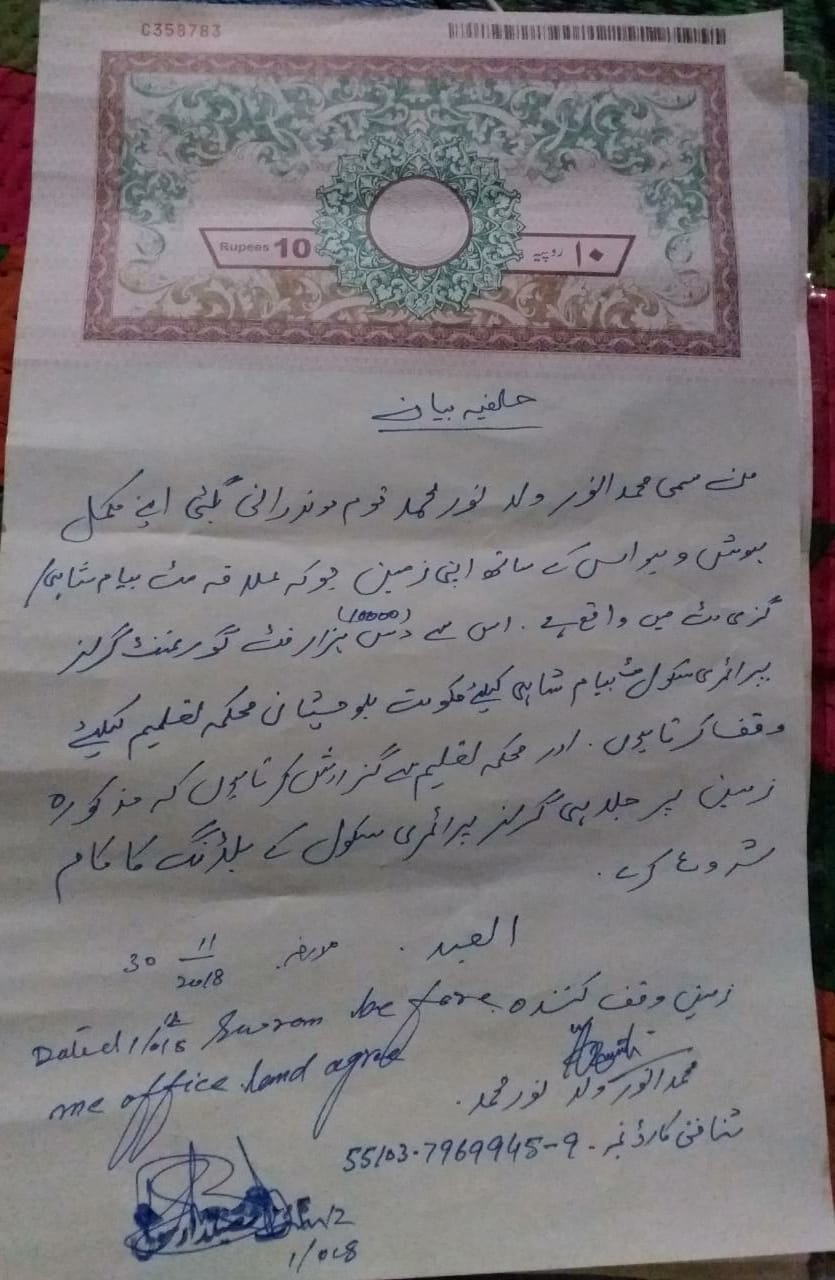 C358783
Rupees 10
۱۰ روپیہ
حلفیہ بیان
من مسمی محمد انور ولد نور محمد قوم موندرانی بگٹی اپنے مکمل
ہوش و حواس کے ساتھ اپنی زمین جو کہ علاقہ مٹ بیام شاہی/
گزی مٹ میں واقع ہے۔ اس سے دس (10000) ہزار فٹ گورنمنٹ گرلز
پرائمری سکول مٹ بیام شاہی کیلئے حکومت بلوچستان محکمہ تعلیم کیلئے
وقف کرتا ہوں۔ اور محکمہ تعلیم سے گزارش کرتا ہوں کہ مذکورہ
زمین پر جلد ہی گرلز پرائمری سکول کے بلڈنگ کا کام
شروع کرے۔
العبد۔ مورخہ 30 11/2018
زمین وقف کنندہ
Dated Sworn before
me office land agree
محمد انور ولد نور محمد۔
شناختی کارڈ نمبر۔ 55103-7969945-9